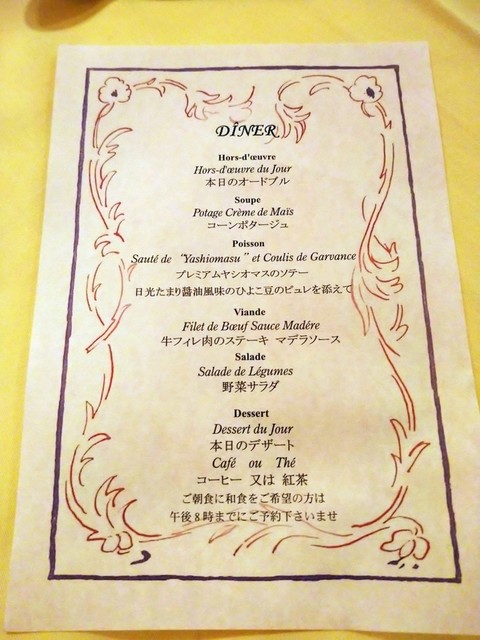 DÎNER
Hors-d'œuvre
Hors-d'œuvre du Jour
本日のオードブル
Soupe
Potage Crème de Maïs
コーンポタージュ
Poisson
Sauté de “Yashiomasu” et Coulis de Garvance
プレミアムヤシオマスのソテー
日光たまり醤油風味のひよこ豆のピュレを添えて
Viande
Filet de Bœuf Sauce Madére
牛フィレ肉のステーキ マデラソース
Salade
Salade de Légumes
野菜サラダ
Dessert
Dessert du Jour
本日のデザート
Café ou Thé
コーヒー 又は 紅茶
ご朝食に和食をご希望の方は
午後8時までにご予約下さいませ